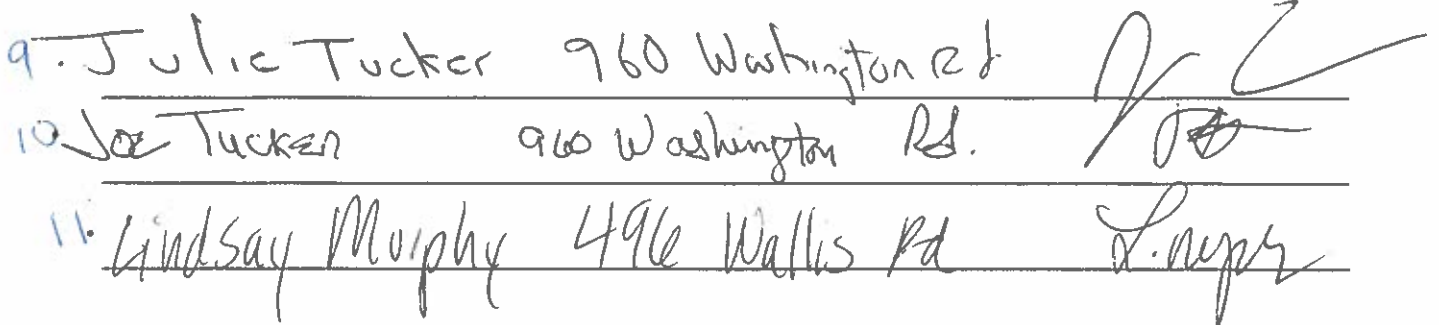 9. Julie Tucker 960 Washington Rd
10 Joe Tucker 960 Washington Rd.
11. Lindsay Murphy 496 Wallis Rd